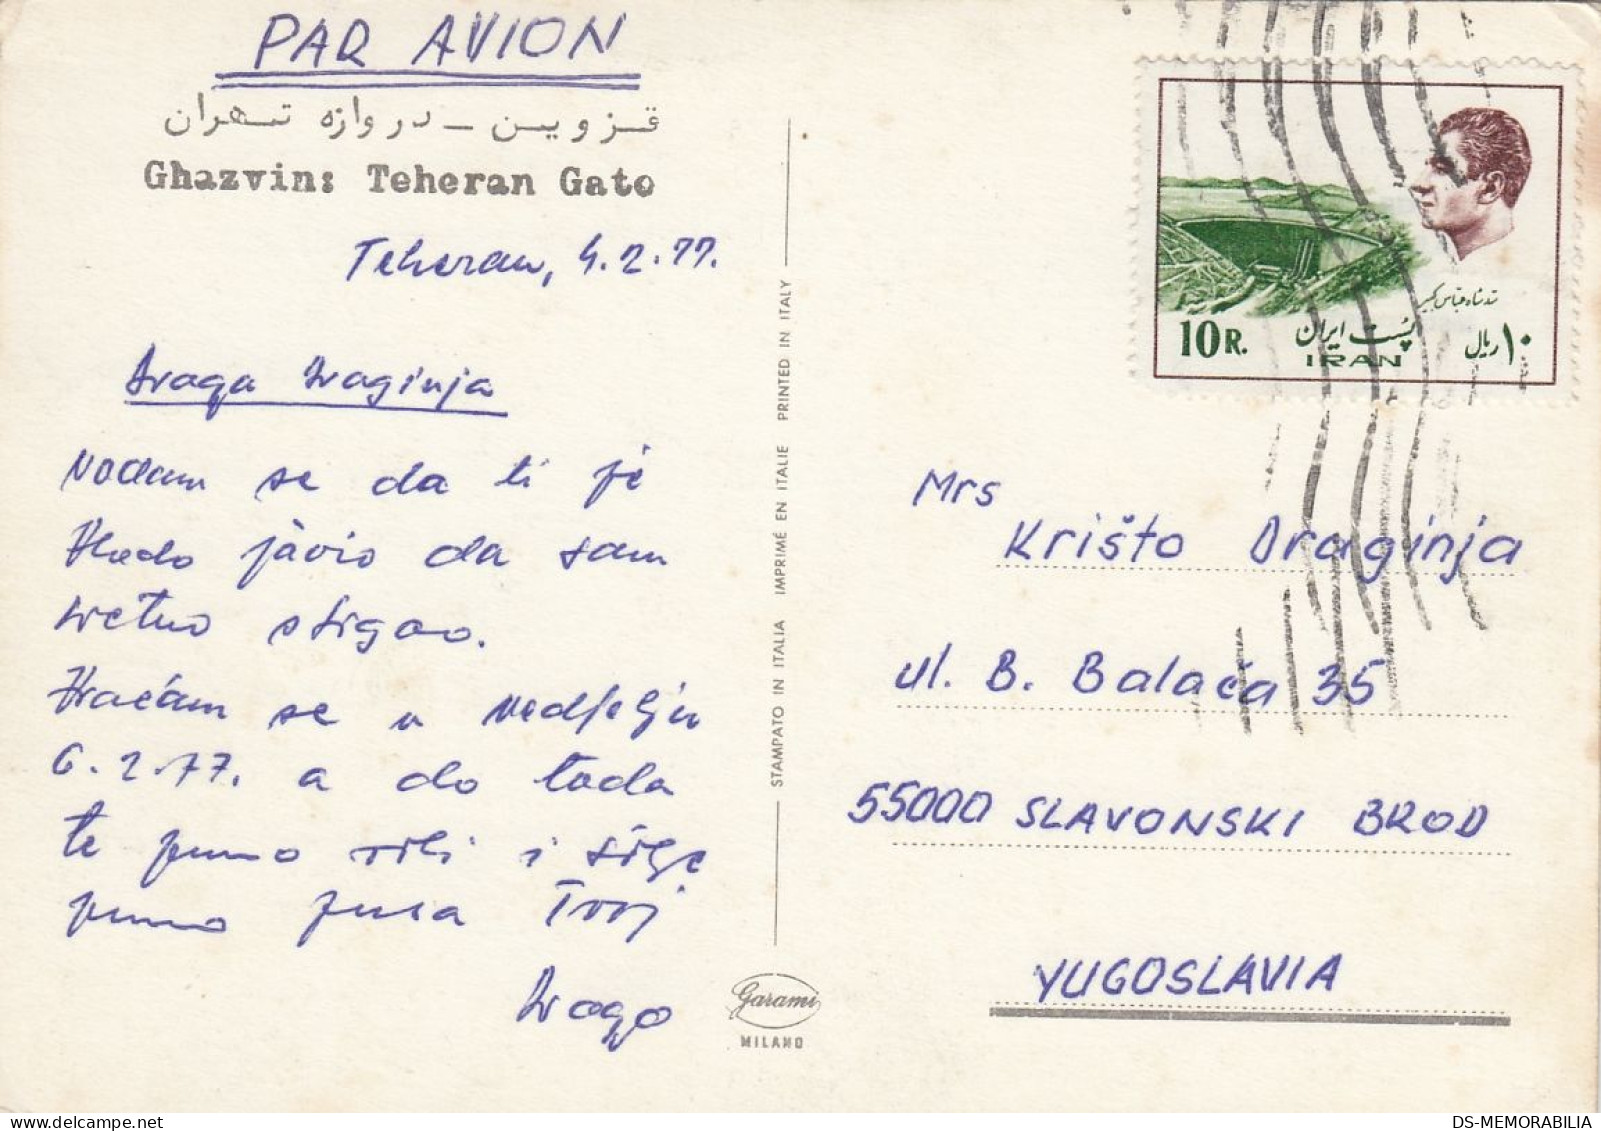 PAR AVION
قزوین - دروازه تهران
Ghazvin: Teheran Gate
Teheran, 4.2.77.
Draga Draginja
Nadam se da ti je
Vlado javio da sam
sretno stigao.
Vraćam se u nedjelju
6.2.77. a do tada
te puno voli i šalje
puno pusa Tvoj
Drago
STAMPATO IN ITALIA IMPRIMÉ EN ITALIE PRINTED IN ITALY
Garami
MILANO
سد شاه عباس کبیر
10 R.
پست ایران
IRAN
۱۰ ریال
Mrs
Krišto Draginja
ul. B. Balaća 35
55000 SLAVONSKI BROD
YUGOSLAVIA
DS-MEMORABILIA